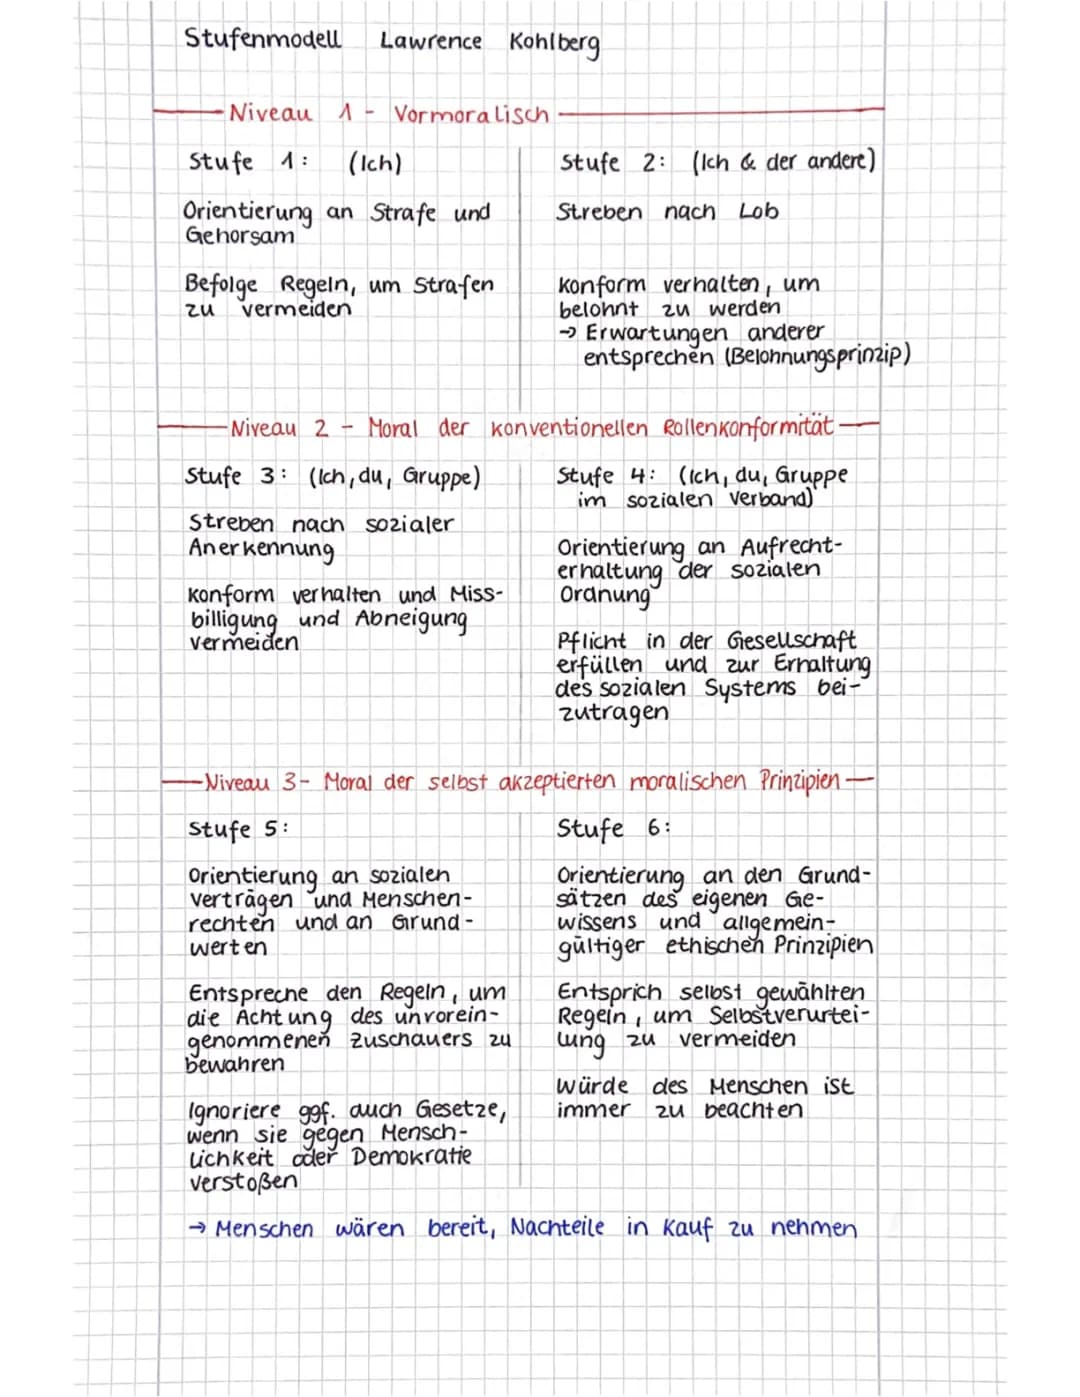 Stufenmodell Lawrence Kohlberg
Niveau 1 - Vormoralisch
Stufe 1: (Ich)
Orientierung an Strafe und
Gehorsam
Befolge Regeln, um Strafen
zu vermeiden
Stufe 2: (Ich & der andere)
Streben nach Lob
konform verhalten, um
belohnt zu werden
→ Erwartungen anderer
entsprechen (Belohnungsprinzip)
Niveau 2 - Moral der konventionellen Rollenkonformität
Stufe 3: (Ich, du, Gruppe)
Streben nach sozialer
Anerkennung
konform verhalten und Miss-
billigung und Abneigung
vermeiden
Stufe 4: (Ich, du, Gruppe
im sozialen Verband)
Orientierung an Aufrecht-
erhaltung der sozialen
Ordnung
Pflicht in der Gesellschaft
erfüllen und zur Erhaltung
des sozialen Systems bei-
zutragen
Niveau 3- Moral der selbst akzeptierten moralischen Prinzipien
Stufe 5:
Orientierung an sozialen
Verträgen und Menschen-
rechten und an Grund-
werten
Entspreche den Regeln, um
die Achtung des unvorein-
genommenen Zuschauers zu
bewahren
Ignoriere ggf. auch Gesetze,
wenn sie gegen Mensch-
lichkeit oder Demokratie
verstoßen
Stufe 6:
Orientierung an den Grund-
sätzen des eigenen Ge-
wissens und allgemein-
gültiger ethischen Prinzipien
Entsprich selbst gewählten
Regeln, um Selbstverurtei-
lung zu vermeiden
Würde des Menschen ist
immer zu beachten
→ Menschen wären bereit, Nachteile in Kauf zu nehmen